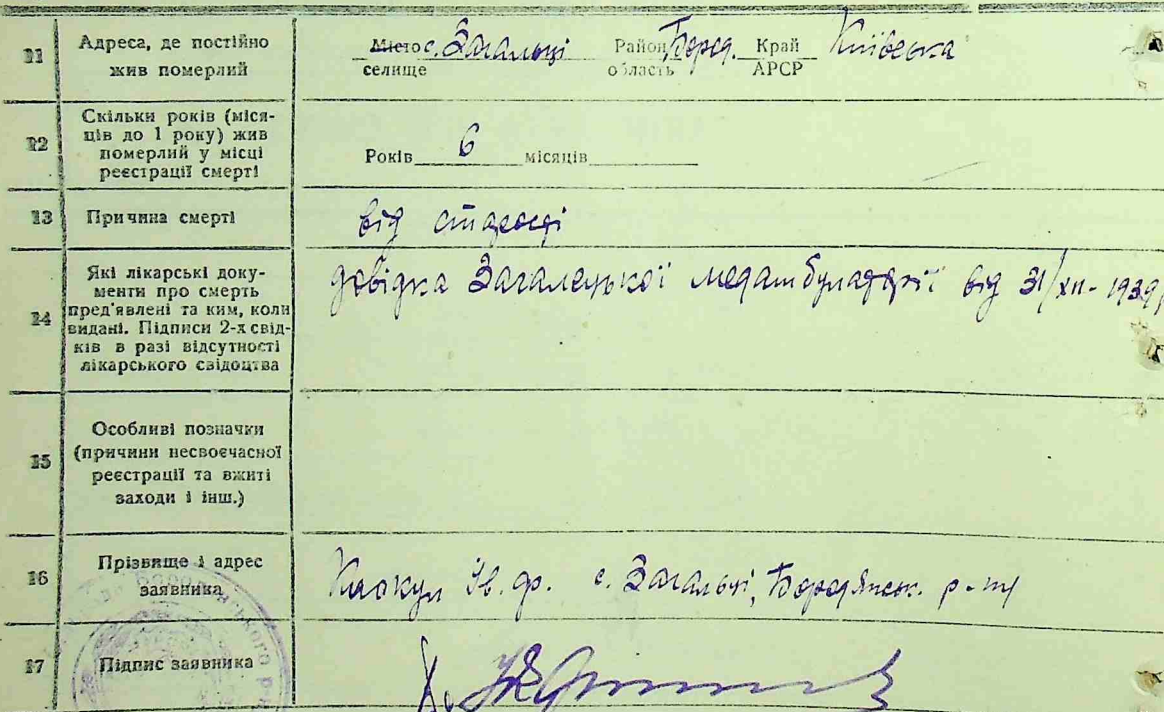 11 Адреса, де постійно жив померлий
Місто с. Загальці Район Борд. Край Київська
селище область АРСР
12 Скільки років (міся-
ців до 1 року) жив
померлий у місці
реєстрації смерті
Років 6 місяців
13 Причина смерті
від старості
14 Які лікарські доку-
менти про смерть
пред'явлені та ким, коли
видані. Підписи 2-х свід-
ків в разі відсутності
лікарського свідоцтва
довідка Загалецької медамбулаторії від 31/XII-1939
15 Особливі позначки
(причини несвоєчасної
реєстрації та вжиті
заходи і інш.)
16 Прізвище і адрес
заявника
Ів. ф. с. Загальці, Бородянськ. р-ну
17 Підпис заявника